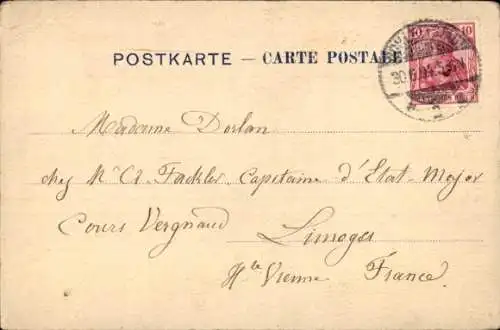 POSTKARTE — CARTE POSTALE
10 10
30.6.04
Madame Dorlan
chez Mr Ct. Fackler, Capitaine d'Etat-Major
Cours Vergnaud
Limoges
Hte Vienne France